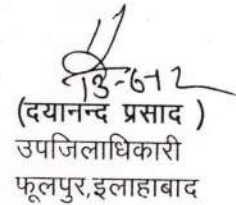 13-6-12
(दयानन्द प्रसाद )
उपजिलाधिकारी
फूलपुर,इलाहाबाद